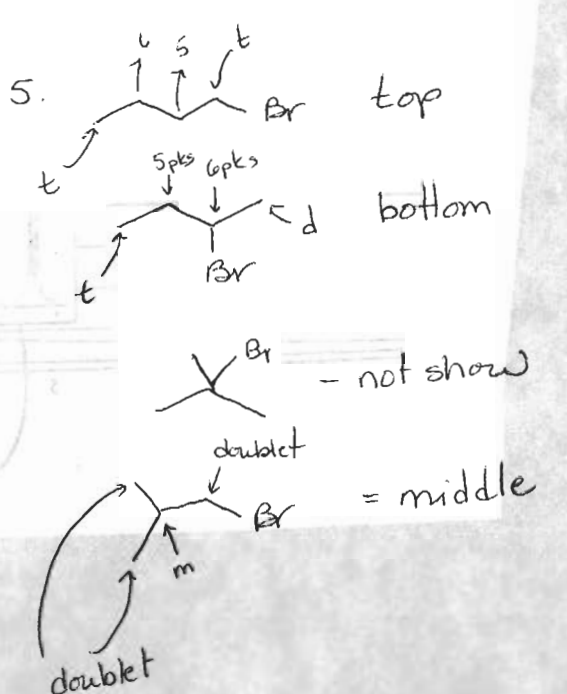 5.
6 5 t
Br top
t
5pks 6pks
bottom
d
t
Br
Br
- not show
doublet
Br = middle
m
doublet